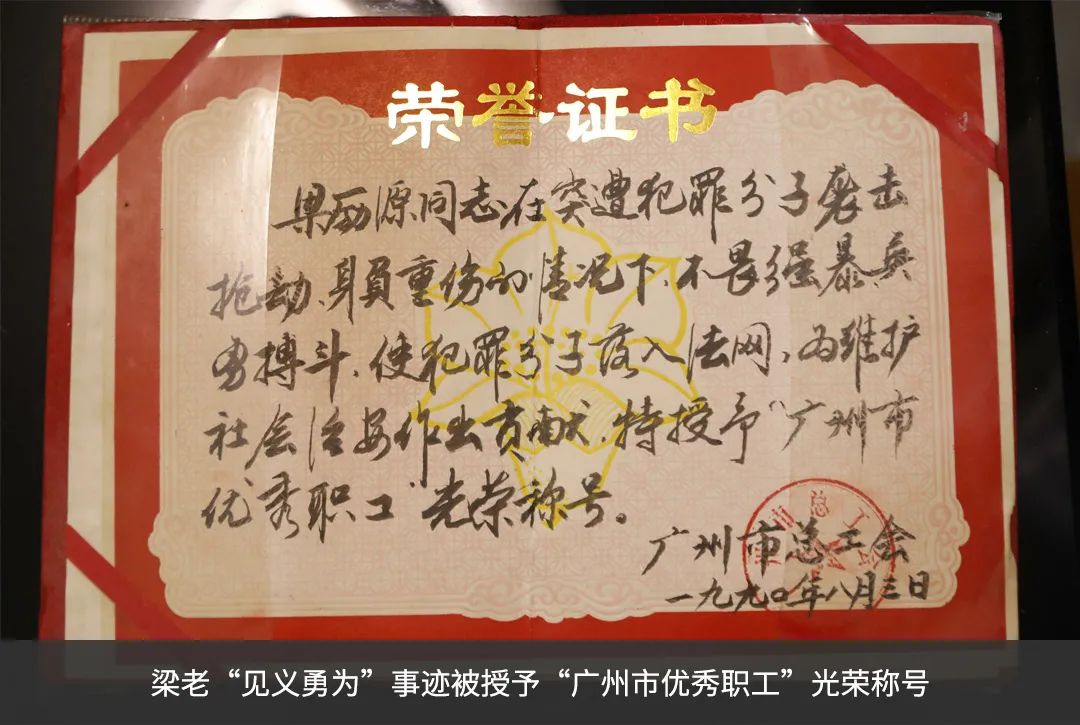 荣誉证书
梁源同志在突遭犯罪分子袭击
抢劫、身负重伤的情况下,不畏强暴,英
勇搏斗,使犯罪分子落入法网,为维护
社会治安作出贡献,特授予“广州市
优秀职工”光荣称号。
广州市总工会
一九九〇年八月三日
梁老“见义勇为”事迹被授予“广州市优秀职工”光荣称号